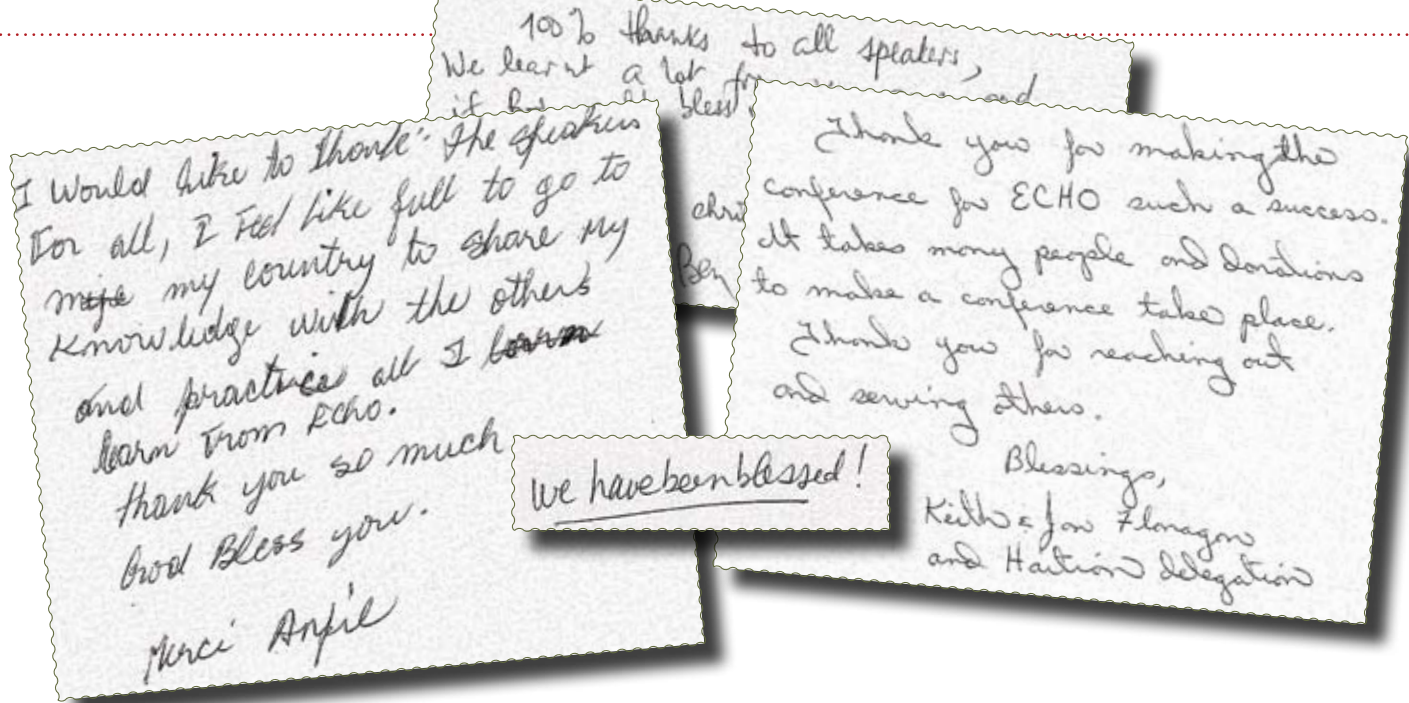 100% thanks to all speakers,
We learnt a lot and
bless
Ben
I Would Like to Thank: The speakers
For all, I Feel Like full to go to
my country to share My
Knowledge with the others
and practice all I
learn From Echo.
thank you so much
God Bless you.
Merci Anfie
We have been blessed!
Thank you for making the
conference for ECHO such a success.
It takes many people and donations
to make a conference take place.
Thank you for reaching out
and serving others.
Blessings,
Keith & Jon Flanagan
and Haitian delegation